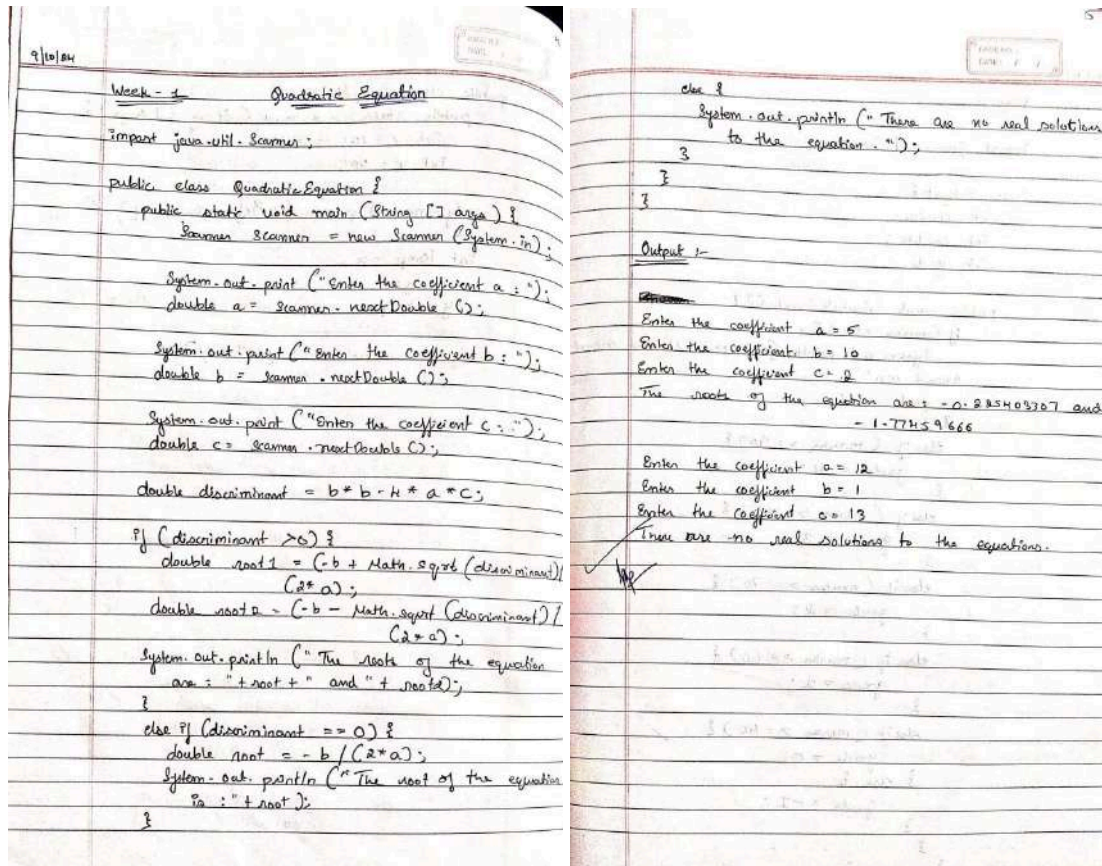 9/10/24
Week - 1 Quadratic Equation
import java.util.Scanner;
public class QuadraticEquation {
public static void main (String [] args) {
Scanner scanner = new Scanner (System.in);
System.out.print ("Enter the coefficient a : ");
double a = scanner.nextDouble ();
System.out.print ("Enter the coefficient b : ");
double b = scanner.nextDouble ();
System.out.print ("Enter the coefficient c : ");
double c = scanner.nextDouble ();
double discriminant = b * b - 4 * a * c;
if (discriminant > 0) {
double root1 = (-b + Math.sqrt (discriminant) /
(2 * a);
double root2 = (-b - Math.sqrt (discriminant) /
(2 * a);
System.out.println ("The roots of the equation
are : " + root + " and " + root2);
}
else if (discriminant == 0) {
double root = - b / (2 * a);
System.out.println ("The root of the equation
is : " + root );
}
5
else {
System.out.println (" There are no real solutions
to the equation. ");
}
}
}
Output :-
Enter the coefficient a = 5
Enter the coefficient b = 10
Enter the coefficient c = 2
The roots of the equation are : -0.225403307 and
- 1.77459666
Enter the coefficient a = 12
Enter the coefficient b = 1
Enter the coefficient c = 13
There are no real solutions to the equations.